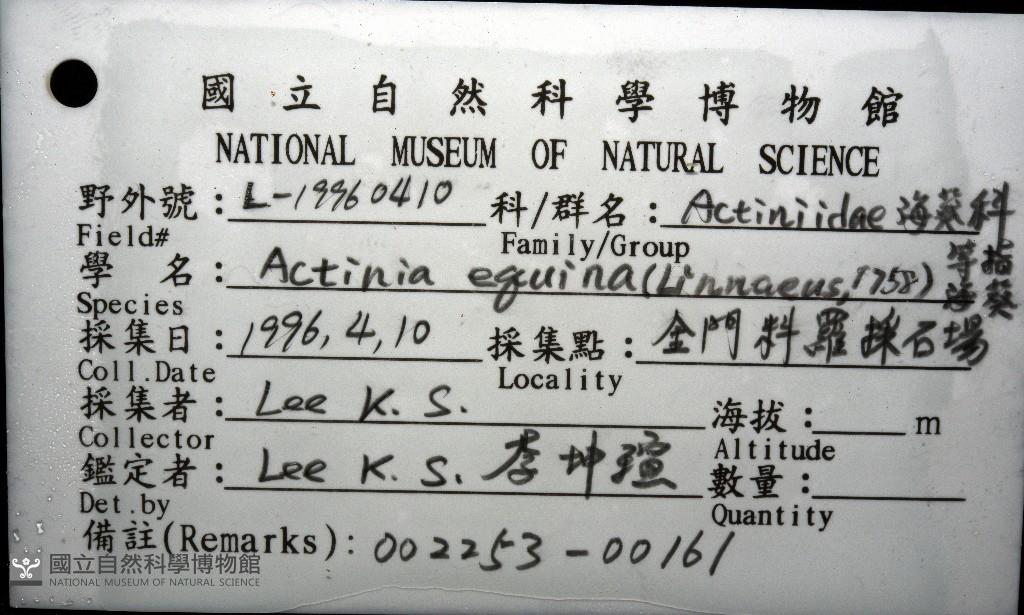 國立自然科學博物館
NATIONAL MUSEUM OF NATURAL SCIENCE
野外號：L-19960410 科/群名：Actiniidae 海葵科
Field# Family/Group
學 名：Actinia equina (Linnaeus, 1758) 等指海葵
Species
採集日：1996, 4, 10 採集點：金門料羅採石場
Coll.Date Locality
採集者：Lee K. S. 海拔：m
Collector Altitude
鑑定者：Lee K. S. 李坤瑄 數量：
Det.by Quantity
備註(Remarks)：002253-00161
國立自然科學博物館
NATIONAL MUSEUM OF NATURAL SCIENCE